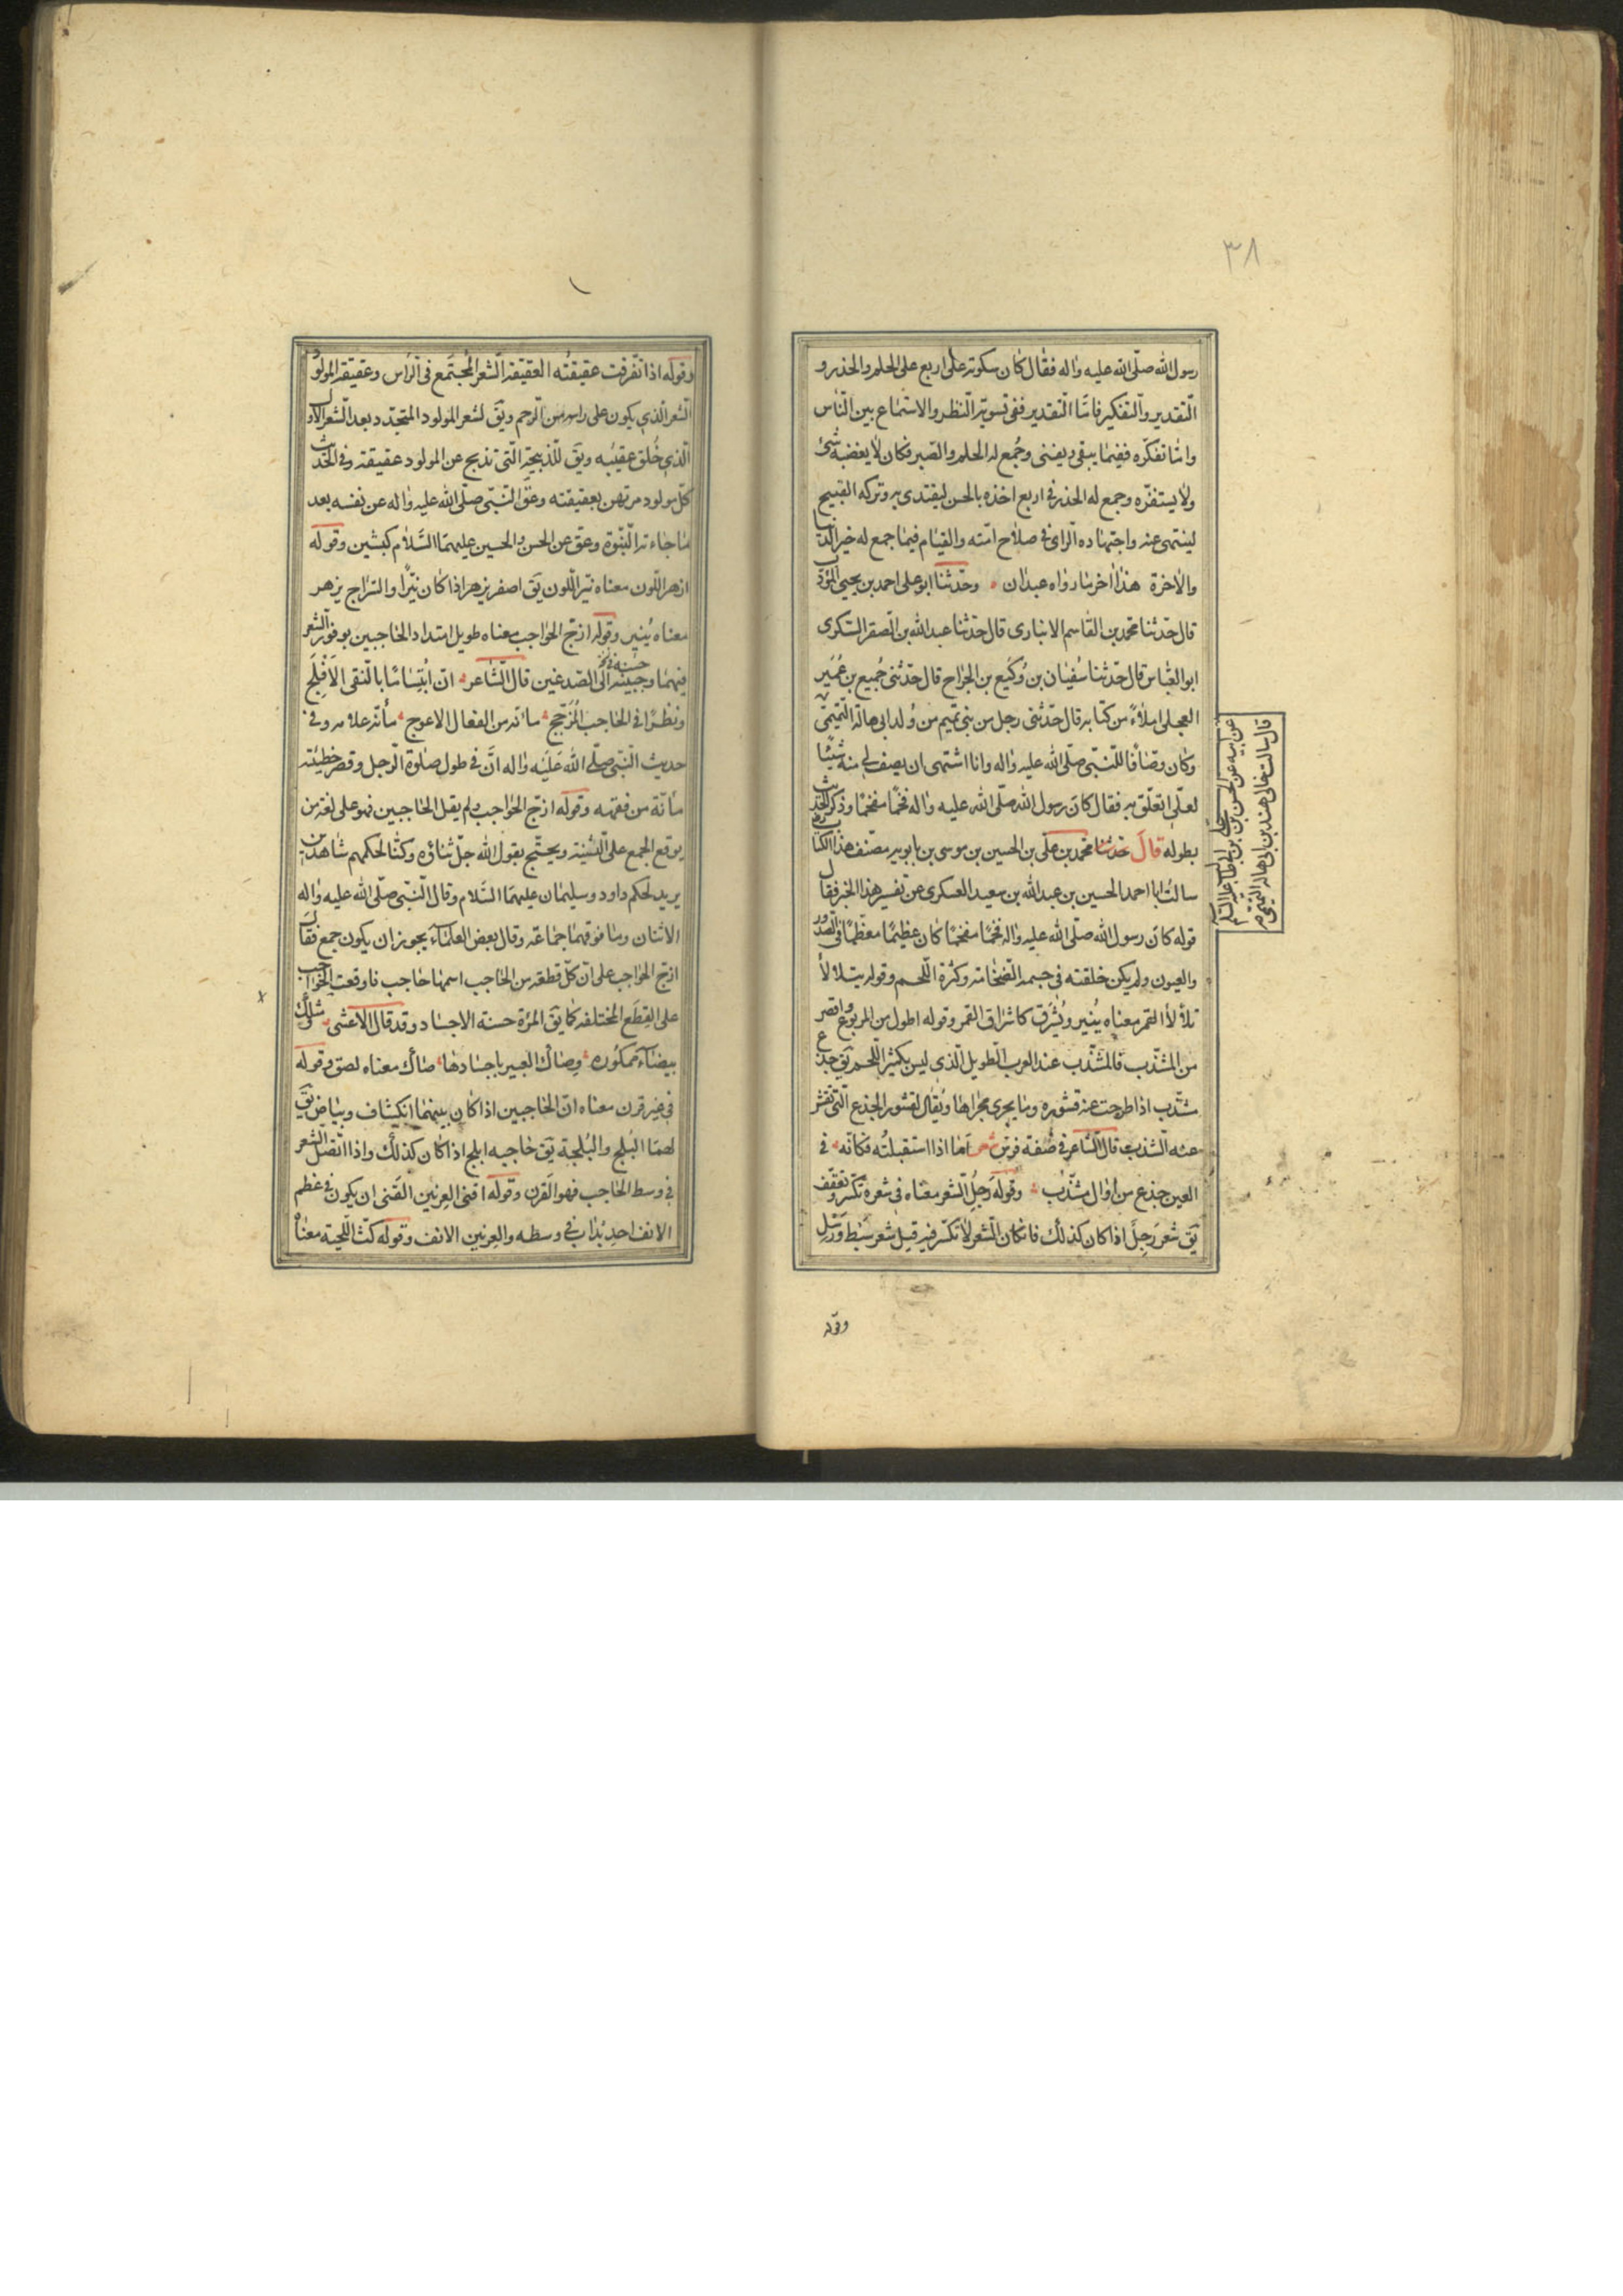 ٣٨
رسول الله صلّى الله عليه واله فقال كان سكوته على اربع على الحلم والحذر و
التّقدير والتّفكير فامّا التّقدير ففى تسوية النّظر والاستماع بين النّاس
وامّا تفكّره ففيما يبقى ويفنى وجُمع له الحلم والصّبر فكان لا يغضبه شئ
ولا يستفزّه وجمع له الحذر فى اربع اخذه بالحسن ليقتدى به وتركه القبيح
لينتهى عنه واجتهاده الرّاى فى صلاح امّته والقيام فيما جمع له خير الدّنيا
والاخرة هذا اخر ما رواه عبدان وحدّثنا ابو على احمد بن يحيى المؤدّب
قال حدّثنا محمّد بن القاسم الانبارى قال حدّثنا عبد الله بن الصّقر السّكرى
ابو العبّاس قال حدّثنا سُفيان بن وُكَيع بن الجرّاح قال حدّثنى جُميع بن عُمَير
العجلى املاءً من كتابه قال حدّثنى رجل من بنى تميم من وُلد ابى هالة التّميمىّ
عن ابيه عن الحسن بن على بن ابى طالب عليه السّلم
قال سالت خالى هند بن ابى هالة التّميمىّ
وكان وصّافًا للنّبىّ صلّى الله عليه واله وانا اشتهى ان يصف لى منه شيئًا
لعلّى اتعلّق به فقال كان رسول الله صلّى الله عليه واله فخمًا مفخمًا وذكر الحديث
بطوله قال حدّثنا محمد بن على بن الحسين بن موسى بن بابويه مصنّف هذا الكتاب
سالتُ ابا احمد الحسين بن عبد الله بن سعيد العسكرى عن تفسير هذا الخبر فقال
قوله كان رسول الله صلّى الله عليه واله فخمًا مفخمًا كان عظيمًا معظّمًا فى الصّدور
والعيون ولم يكن خلقته فى جسمه الضّخامة وكثرة اللّحم وقوله يتلألأ
تلألأ القمر معناه يُنير ويُشرق كاشراق القمر وقوله اطول من المربوع واقصر
من المشذّب فالمشذّب عند العرب الطّويل الّذى ليس بكثير اللّحم يق جذع
مشذّب اذا طرحت عنه قشوره وما يجرى مجراها ويُقال لقشور الجذع الّتى تقشر
عنه الشّذب قال الشّاعر فى صفة فرس امّا اذا استقبلتُه فكانّه فى
العين جذع من اوال مشذّب وقوله رَجِلُ الشّعر معناه فى شعره تكسّر وتعقّف
يق شعر رَجِل اذا كان كذلك فاذا كان الشّعر لا تكسّر فيه قيل شعر سَبط ورَسْل
وقوله
وقوله اذا تفّرقت عقيقتُه العقيقة الشّعر المجتَمع فى الرّاس وعقيقة المولود
الشّعر الّذى يكون على راسه من الرّحم ويق لشعر المولود المتجدّد بعد الشّعر الاول
الّذى حُلق عقيبه ويق للذّبيحة الّتى تذبح عن المولود عقيقة وفى الحديث
كلّ مولود مرتهن بعقيقته وعقّ النّبىّ صلّى الله عليه واله عن نفسه بعد
ما جاءته النّبّوة وعقّ عن الحسن والحسين عليهما السّلام كبشين وقوله
ازهر اللّون معناه نيّر اللّون يق اصفر يزهر اذا كان نيّرًا والسّراج يزهر
معناه يُنير وقوله ازجّ الحواجب معناه طويل امتداد الحاجبين بوفور الشّعر
فيهما وجبينه الى الصّدغين قال الشّاعر انّ ابتسامًا بالنّقى الاَفْلَج
ونظرًا فى الحاجب المُزَجّج مأنّه من الفعال الاعوج مأنّه علامة وفى
حديث النّبىّ صلّى الله عليه واله انّ فى طول صلوة الرّجل وقصر خطبته
مأنّة من فقهه وقوله ازجّ الحواجب ولم يقل الحاجبين فهو على لغة من
يوقع الجمع على التّثنية ويحتجّ بقول الله جلّ ثناؤه وكنّا لحكمهم شاهدين
يريد لحكم داود وسليمان عليهما السّلام وقال النّبىّ صلّى الله عليه واله
الاثنان وما فوقهما جماعة وقال بعض العلماء يجوز ان يكون جمع فقال
ازجّ الحواجب على انّ كلّ قطعة من الحاجب اسمها حاجب فاوقعت الحواجب
على القِطَع المختلفة كما يق المرءة حسنة الاجساد وقد قال الاعشى
بيضاء ممكُوره وصاك العبير باجسادها صاك معناه لصق وقوله
فى غير قرن معناه انّ الحاجبين اذا كان بينهما انكشاف وبياض يق
لهما البَلَج والبُلجة يق حاجبه ابلج اذا كان كذلك واذا اتّصل الشّعر
فى وسط الحاجب فهو القرن وقوله اقنى العرنين القنى ان يكون فى عظم
الانف احديداب فى وسطه والعرنين الانف وقوله كثّ اللّحية معناه